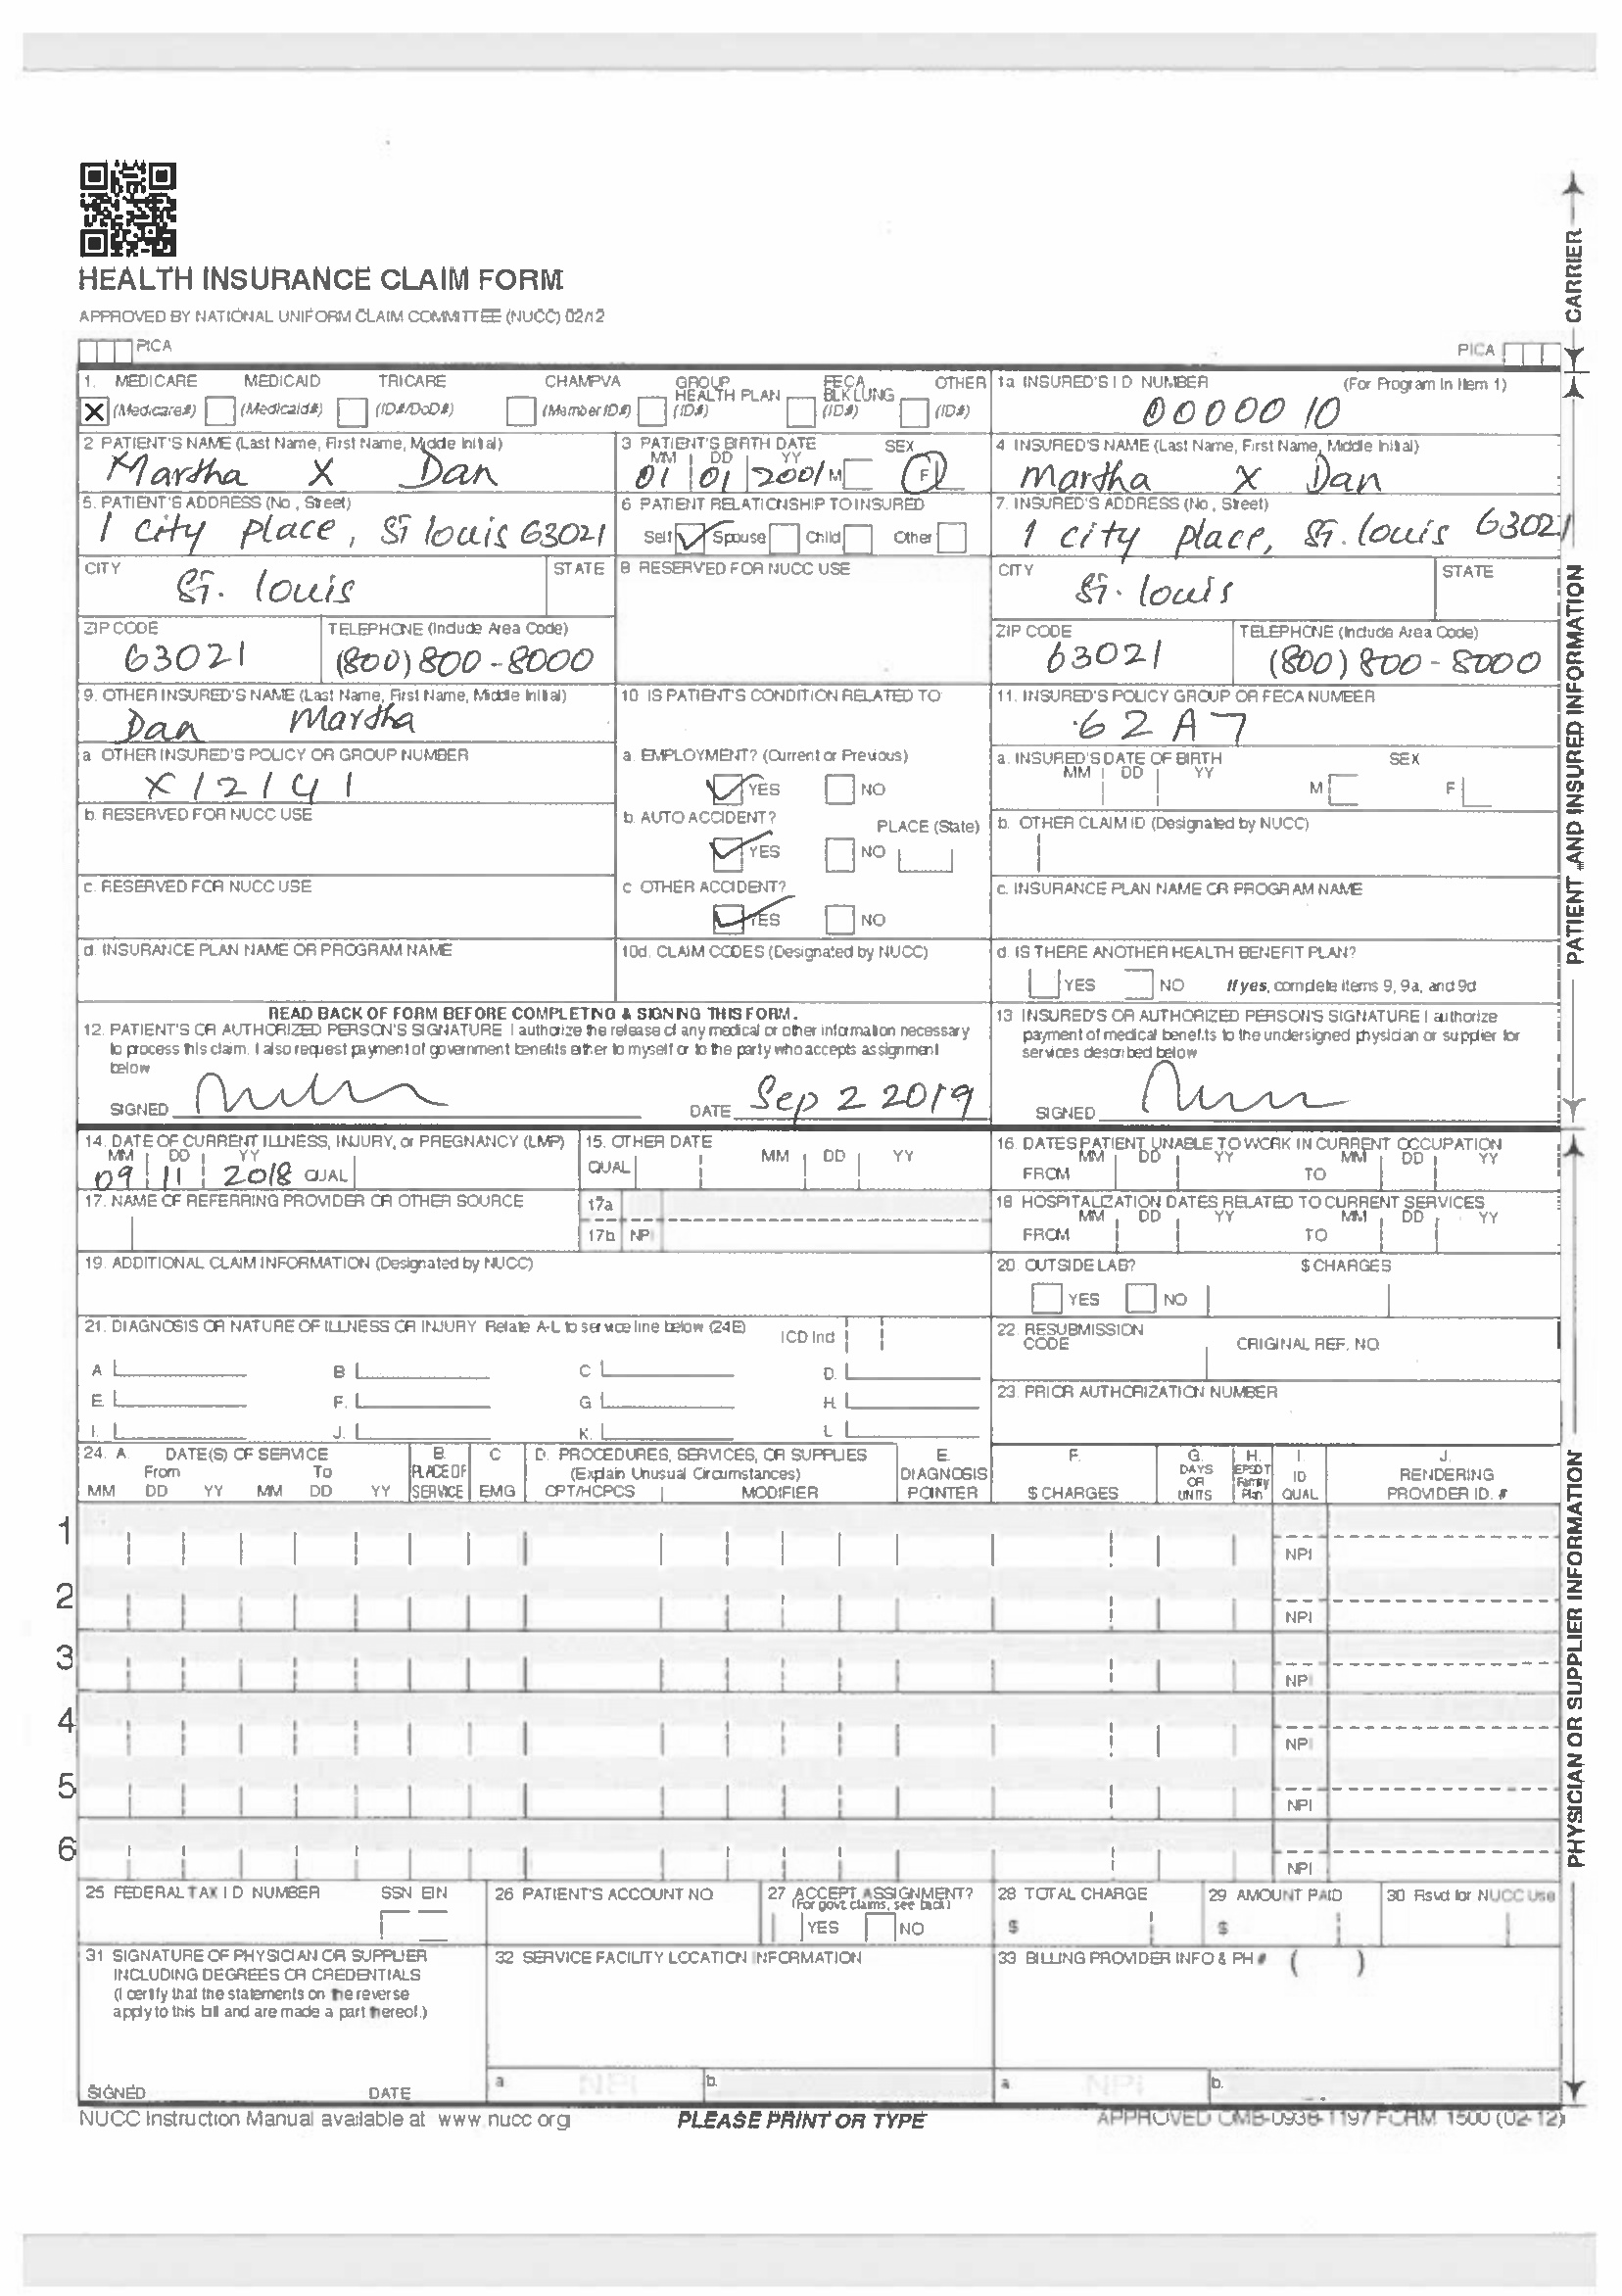 HEALTH INSURANCE CLAIM FORM
APPROVED BY NATIONAL UNIFORM CLAIM COMMITTEE (NUCC) 02/12
PICA
PICA
CARRIER
1. MEDICARE MEDICAID TRICARE CHAMPVA GROUP HEALTH PLAN FECA BLK LUNG OTHER
X (Medicare#) (Medicaid#) (ID#/DoD#) (Member ID#) (ID#) (ID#) (ID#)
1a INSURED'S I D NUMBER (For Program In Item 1)
0000010
2 PATIENT'S NAME (Last Name, First Name, Middle Initial)
Martha X Dan
3 PATIENT'S BIRTH DATE SEX
MM DD YY
01 01 2001 M F
4 INSURED'S NAME (Last Name, First Name, Middle Initial)
martha X Dan
5. PATIENT'S ADDRESS (No, Street)
1 city place, St louis 63021
6 PATIENT RELATIONSHIP TO INSURED
Self Spouse Child Other
7. INSURED'S ADDRESS (No, Street)
1 city place, St. louis 63021
CITY STATE
St. louis
8 RESERVED FOR NUCC USE
CITY STATE
St. louis
ZIP CODE TELEPHONE (Include Area Code)
63021 (800) 800-8000
ZIP CODE TELEPHONE (Include Area Code)
63021 (800) 800-8000
9. OTHER INSURED'S NAME (Last Name, First Name, Middle Initial)
Dan Martha
10 IS PATIENT'S CONDITION RELATED TO
11. INSURED'S POLICY GROUP OR FECA NUMBER
62A7
a OTHER INSURED'S POLICY OR GROUP NUMBER
X12141
a. EMPLOYMENT? (Current or Previous)
YES NO
a. INSURED'S DATE OF BIRTH SEX
MM DD YY
M F
b. RESERVED FOR NUCC USE
b. AUTO ACCIDENT? PLACE (State)
YES NO
b. OTHER CLAIM ID (Designated by NUCC)
c. RESERVED FOR NUCC USE
c OTHER ACCIDENT?
YES NO
c. INSURANCE PLAN NAME OR PROGRAM NAME
d. INSURANCE PLAN NAME OR PROGRAM NAME
10d. CLAIM CODES (Designated by NUCC)
d. IS THERE ANOTHER HEALTH BENEFIT PLAN?
YES NO If yes, complete items 9, 9a, and 9d
PATIENT AND INSURED INFORMATION
READ BACK OF FORM BEFORE COMPLETING & SIGNING THIS FORM.
12. PATIENT'S OR AUTHORIZED PERSON'S SIGNATURE I authorize the release of any medical or other information necessary
to process this claim. I also request payment of government benefits either to myself or to the party who accepts assignment
below
SIGNED DATE Sep 2 2019
13 INSURED'S OR AUTHORIZED PERSON'S SIGNATURE I authorize
payment of medical benefits to the undersigned physician or supplier for
services described below
SIGNED
14. DATE OF CURRENT ILLNESS, INJURY, or PREGNANCY (LMP)
MM DD YY
09 11 2018 QUAL
15. OTHER DATE
QUAL MM DD YY
16. DATES PATIENT UNABLE TO WORK IN CURRENT OCCUPATION
MM DD YY MM DD YY
FROM TO
17. NAME OF REFERRING PROVIDER OR OTHER SOURCE
17a
17b NPI
18 HOSPITALIZATION DATES RELATED TO CURRENT SERVICES
MM DD YY MM DD YY
FROM TO
19. ADDITIONAL CLAIM INFORMATION (Designated by NUCC)
20. OUTSIDE LAB? $ CHARGES
YES NO
21. DIAGNOSIS OR NATURE OF ILLNESS OR INJURY Relate A-L to service line below (24E) ICD Ind
A B C D.
E. F. G H.
I. J. K. L
22. RESUBMISSION
CODE ORIGINAL REF. NO.
23. PRIOR AUTHORIZATION NUMBER
24. A. DATE(S) OF SERVICE B. C D. PROCEDURES, SERVICES, OR SUPPLIES E. F. G. H. I. J.
From To PLACE OF (Explain Unusual Circumstances) DIAGNOSIS DAYS OR EPSDT Family ID RENDERING
MM DD YY MM DD YY SERVICE EMG CPT/HCPCS MODIFIER POINTER $ CHARGES UNITS Plan QUAL PROVIDER ID. #
1 NPI
2 NPI
3 NPI
4 NPI
5 NPI
6 NPI
PHYSICIAN OR SUPPLIER INFORMATION
25 FEDERAL TAX I D NUMBER SSN EIN
26 PATIENT'S ACCOUNT NO
27 ACCEPT ASSIGNMENT?
(For govt. claims, see back)
YES NO
28 TOTAL CHARGE
$
29 AMOUNT PAID
$
30 Rsvd for NUCC Use
31 SIGNATURE OF PHYSICIAN OR SUPPLIER
INCLUDING DEGREES OR CREDENTIALS
(I certify that the statements on the reverse
apply to this bill and are made a part thereof.)
SIGNED DATE
32 SERVICE FACILITY LOCATION INFORMATION
a. NPI b.
33 BILLING PROVIDER INFO & PH # ( )
a. NPI b.
NUCC Instruction Manual available at www.nucc.org
PLEASE PRINT OR TYPE
APPROVED OMB-0938-1197 FORM 1500 (02-12)